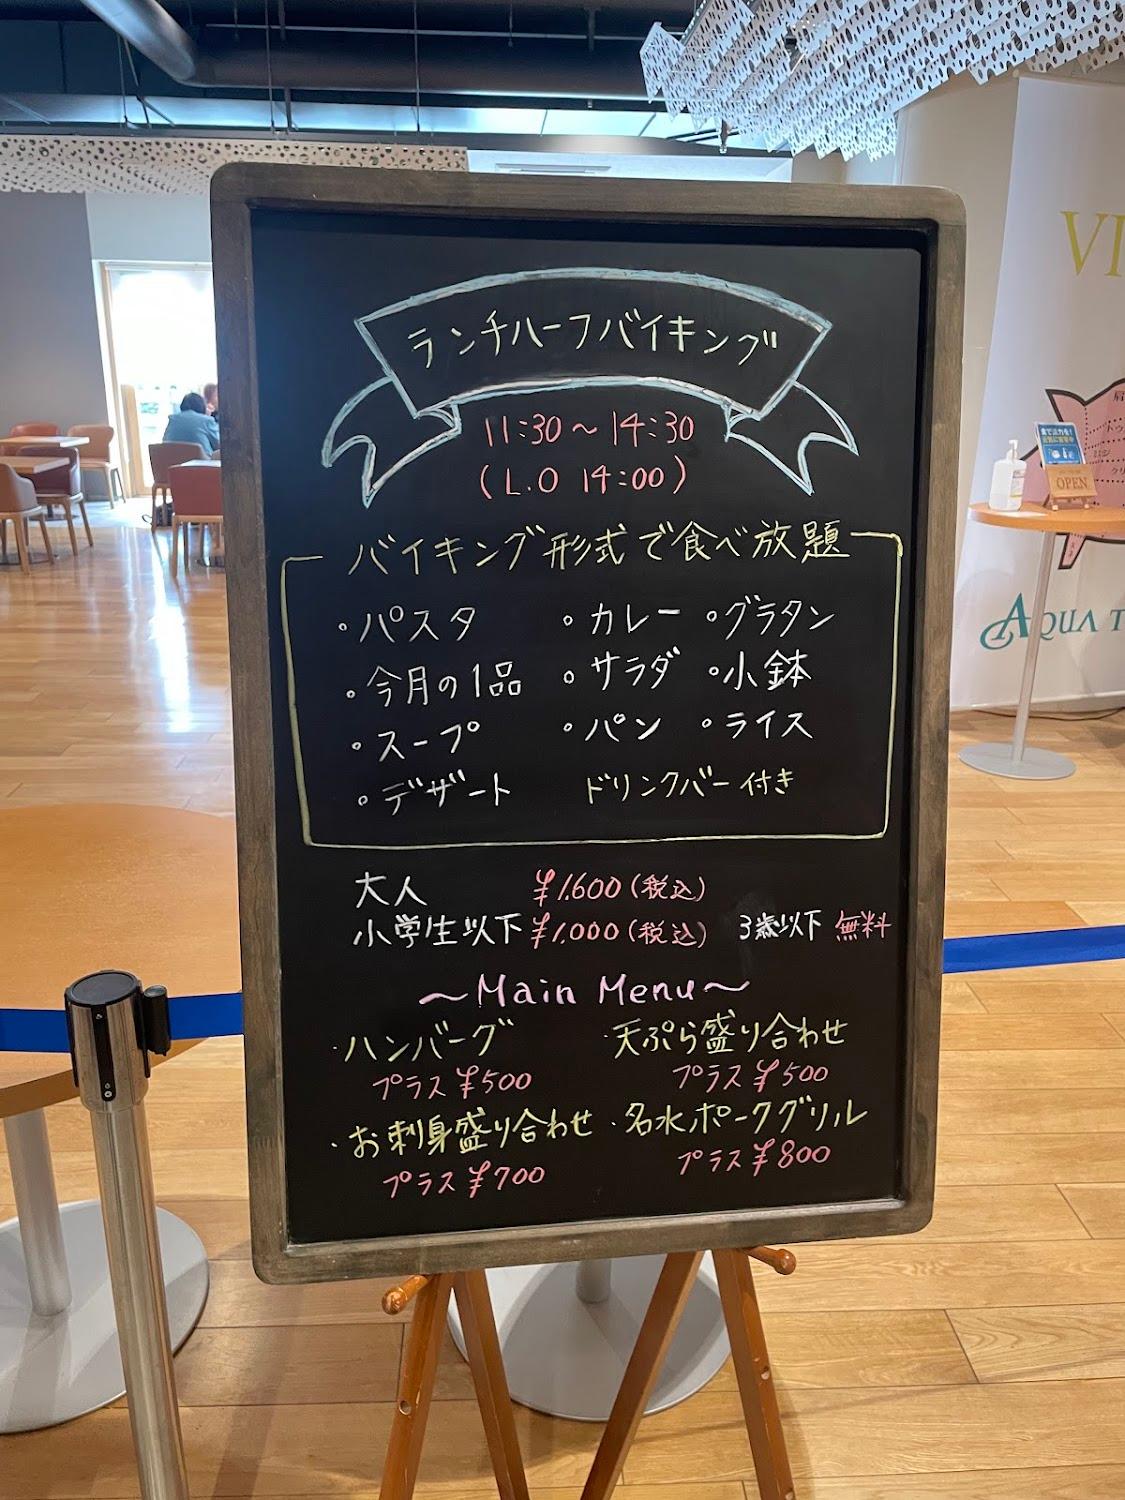 ランチハーフバイキング
11:30～14:30
(L.O 14:00)
バイキング形式で食べ放題
・パスタ ・カレー ・グラタン
・今月の1品 ・サラダ ・小鉢
・スープ ・パン ・ライス
・デザート ドリンクバー付き
大人 ¥1.600(税込)
小学生以下 ¥1.000(税込) 3歳以下 無料
～Main Menu～
・ハンバーグ ・天ぷら盛り合わせ
プラス¥500 プラス¥500
・お刺身盛り合わせ ・名水ポークグリル
プラス¥700 プラス¥800
VI
OPEN
AQUA T